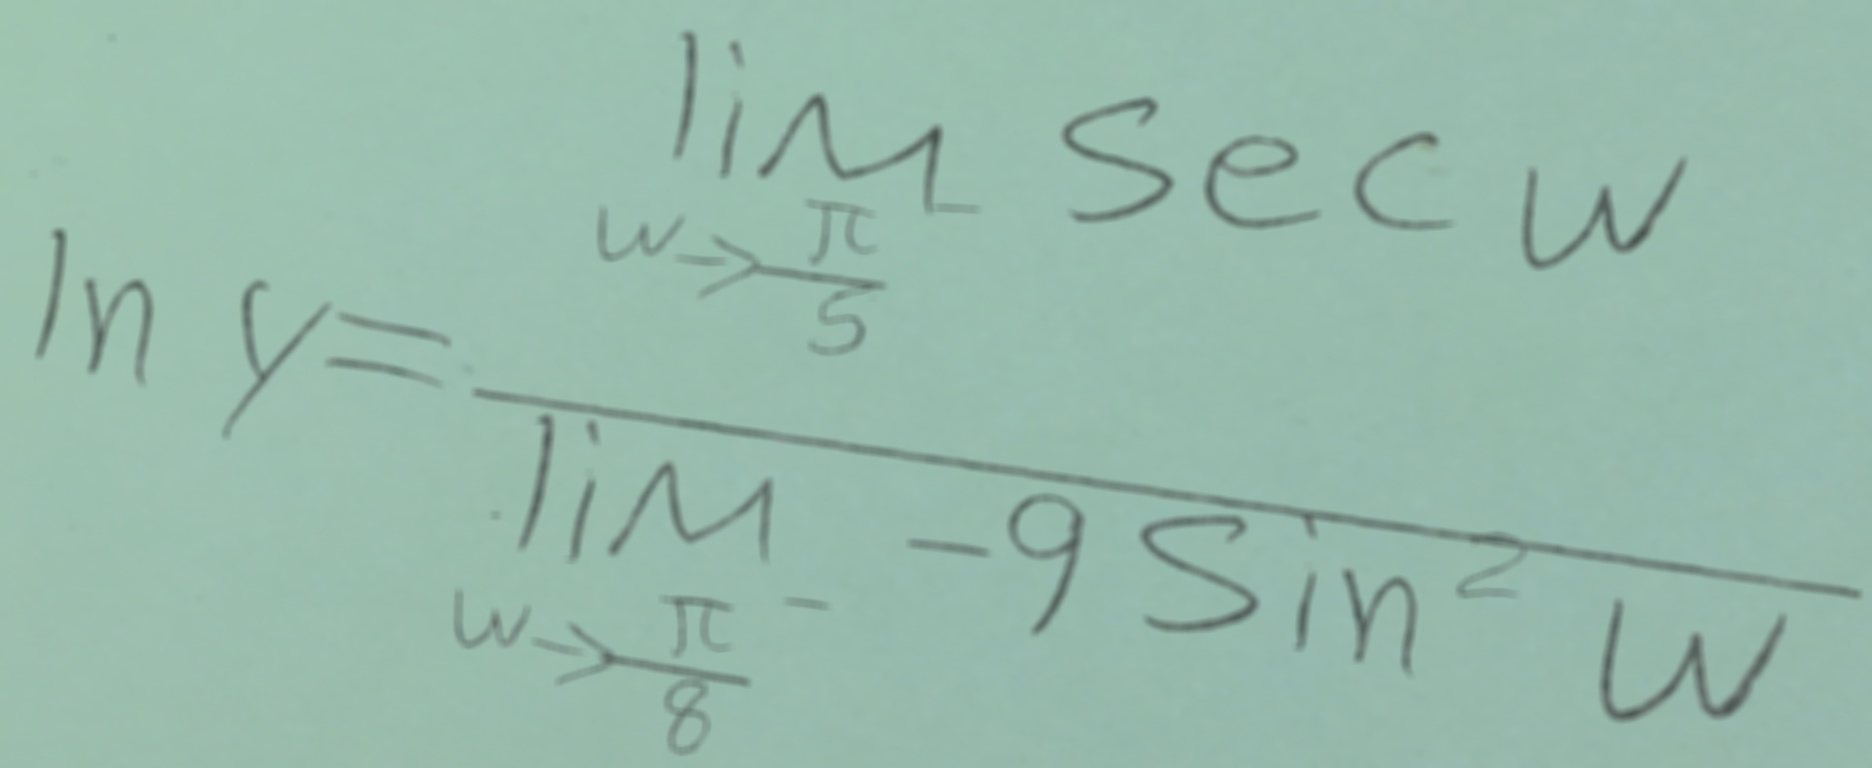 \ln y = \frac{\lim_{w \to \frac{\pi}{5}^-} \sec w}{\lim_{w \to \frac{\pi}{8}^-} -9 \sin^2 w}